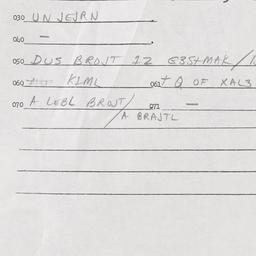 030 UN JEJRN
060 —
050 DUS BROJT 12 G3S+MAK /
060 KIML 061 + Q OF XAL3
070 A LEBL BROJT/ 071 —
/A BRAJTL